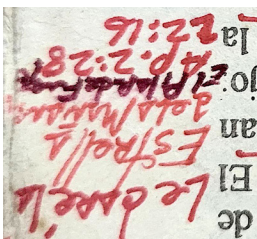 de
El
an
jo.
la
Le DARÉ la
EStRellA
de la MañanA
Ap. 2:28
22:16